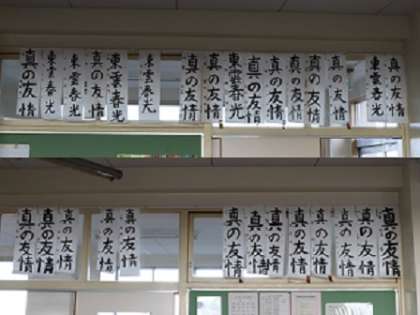 真の友情
東雲春光
東雲春光
真の友情
東雲春光
東雲春光
真の友情
真の友情
東雲春光
真の友情
真の友情
真の友情
真の友情
真の友情
東雲春光
真の友情
真の友情
真の友情
真の友情
真の友情
真の友情
真の友情
真の友情
真の友情
真の友情
真の友情
真の友情
真の友情
真の友情